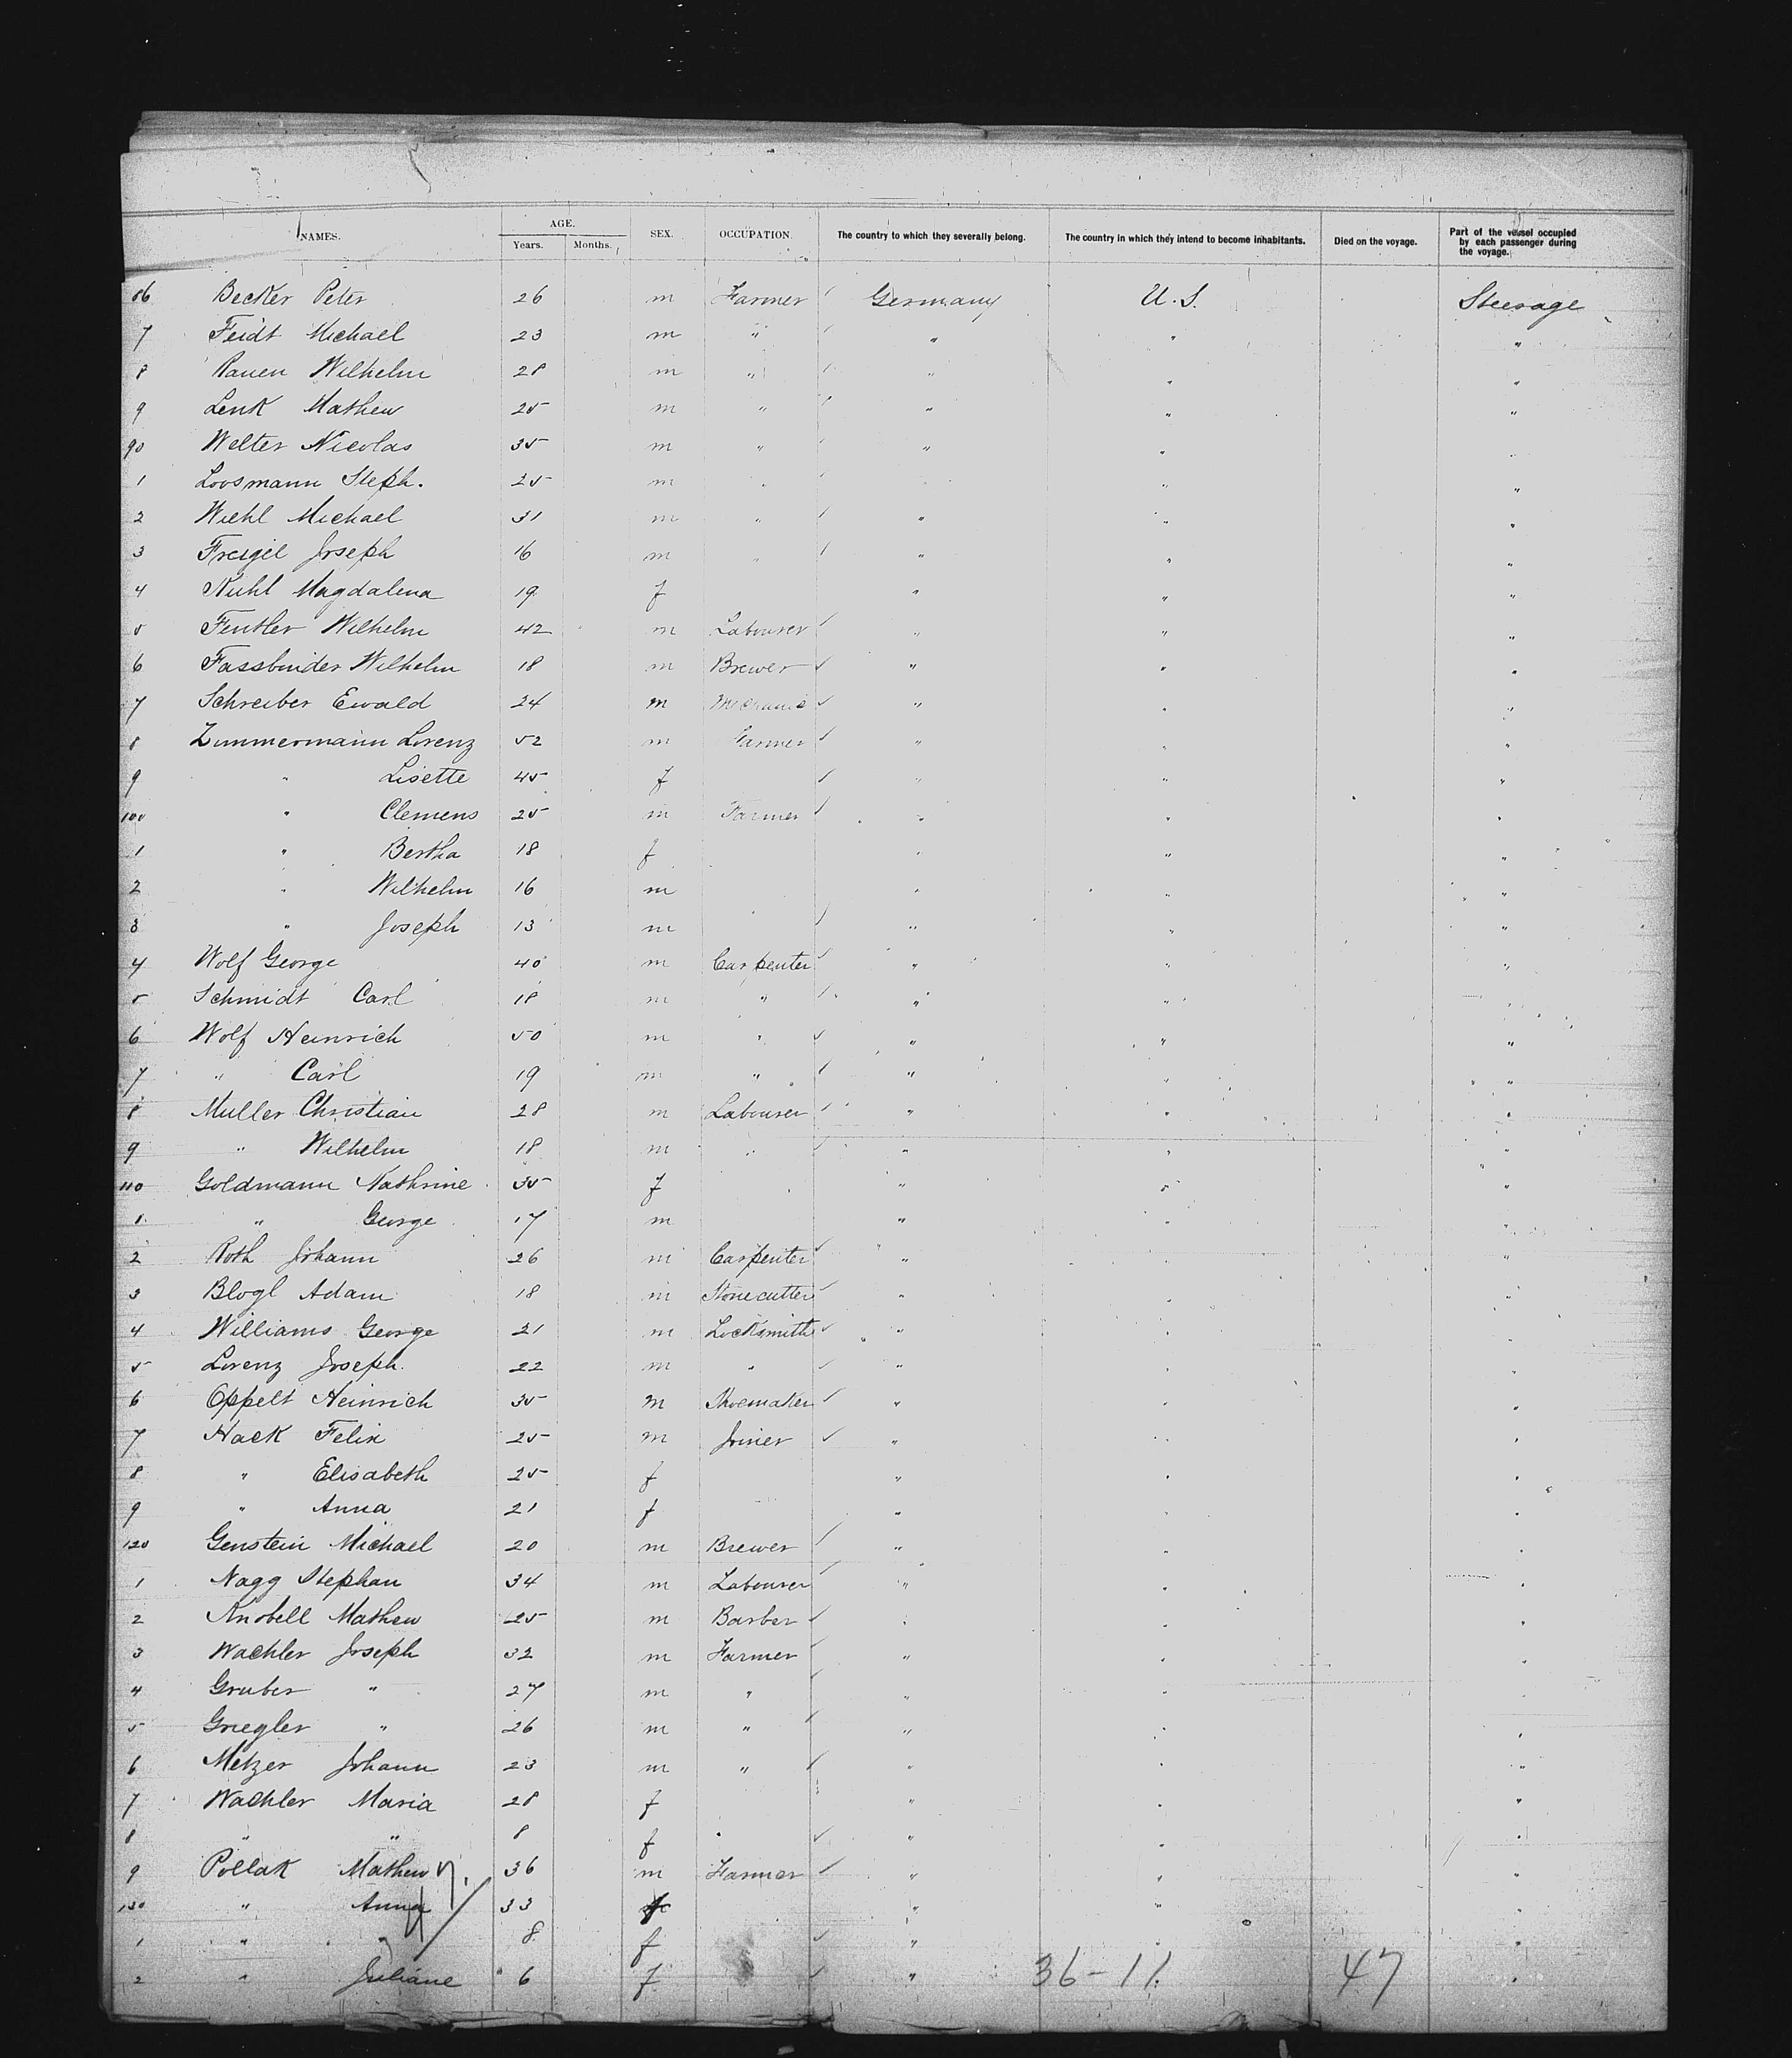 NAMES. AGE. Years. Months. SEX. OCCUPATION. The country to which they severally belong. The country in which they intend to become inhabitants. Died on the voyage. Part of the vessel occupied by each passenger during the voyage.
86 Becker Peter 26 m Farmer Germany U.S. Steerage
7 Feidt Michael 23 m " " " "
8 Pauen Wilhelm 28 m " " " "
9 Lenk Mathew 25 m " " " "
90 Welter Nicolas 35 m " " " "
1 Loosmann Steph. 25 m " " " "
2 Wiehl Michael 31 m " " " "
3 Joseph 16 m " " " "
4 Kuhl Magdalena 19 f " " "
5 Wilhelm 42 m Labourer " " "
6 Fassbinder Wilhelm 18 m Brewer " " "
7 Schreiber Ewald 24 m Mechanic " " "
8 Zimmermann Lorenz 52 m Farmer " " "
9 " Lisette 45 f " " "
100 " Clemens 25 m Farmer " " "
1 " Bertha 18 f " " "
2 " Wilhelm 16 m " " "
3 " Joseph 13 m " " "
4 Wolf George 40 m Carpenter " " "
5 Schmidt Carl 18 m " " " "
6 Wolf Heinrich 50 m " " " "
7 " Carl 19 m " " " "
8 Muller Christian 28 m Labourer " " "
9 " Wilhelm 18 m " " " "
110 Goldmann Kathrine 35 f " " "
1 " George 17 m " " "
2 Roth Johann 26 m Carpenter " " "
3 Blogl Adam 18 m Stonecutter " " "
4 Williams George 21 m Locksmith " " "
5 Lorenz Joseph 22 m " " " "
6 Oppelt Heinrich 35 m Shoemaker " " "
7 Hack Felix 25 m Joiner " " "
8 " Elisabeth 25 f " " "
9 " Anna 21 f " " "
120 Genstein Michael 20 m Brewer " " "
1 Nagg Stephan 34 m Labourer " " "
2 Knobell Mathew 25 m Barber " " "
3 Wachler Joseph 32 m Farmer " " "
4 Gruber " 27 m " " " "
5 Griegler " 26 m " " " "
6 Metzer Johann 23 m " " " "
7 Wachler Maria 28 f " " "
8 " " 8 f " " "
9 Pollak Mathew 36 m Farmer " " "
130 " Anna 33 f " " "
1 " " 8 f " " "
2 " Juliane 6 f " 36-11 47 "